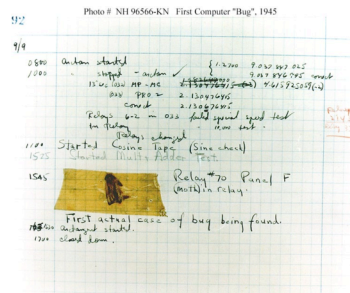 Photo # NH 96566-KN First Computer "Bug", 1945
92
9/9
0800 Antan started
1000 " stopped - antan ✓
{ 1.2700 9.037 847 025
9.037 846 995 correct
13" UC (032) MP-MC
(033) PRO 2 2.130476415
correct 2.130676415
Relays 6-2 in 033 failed special speed test
in relay " 10.000 test.
Relays changed
1100 Started Cosine Tape (Sine check)
1525 Started Multi Adder Test.
1545 Relay #70 Panel F
(moth) in relay.
First actual case of bug being found.
1630 antangent started.
1700 closed down.